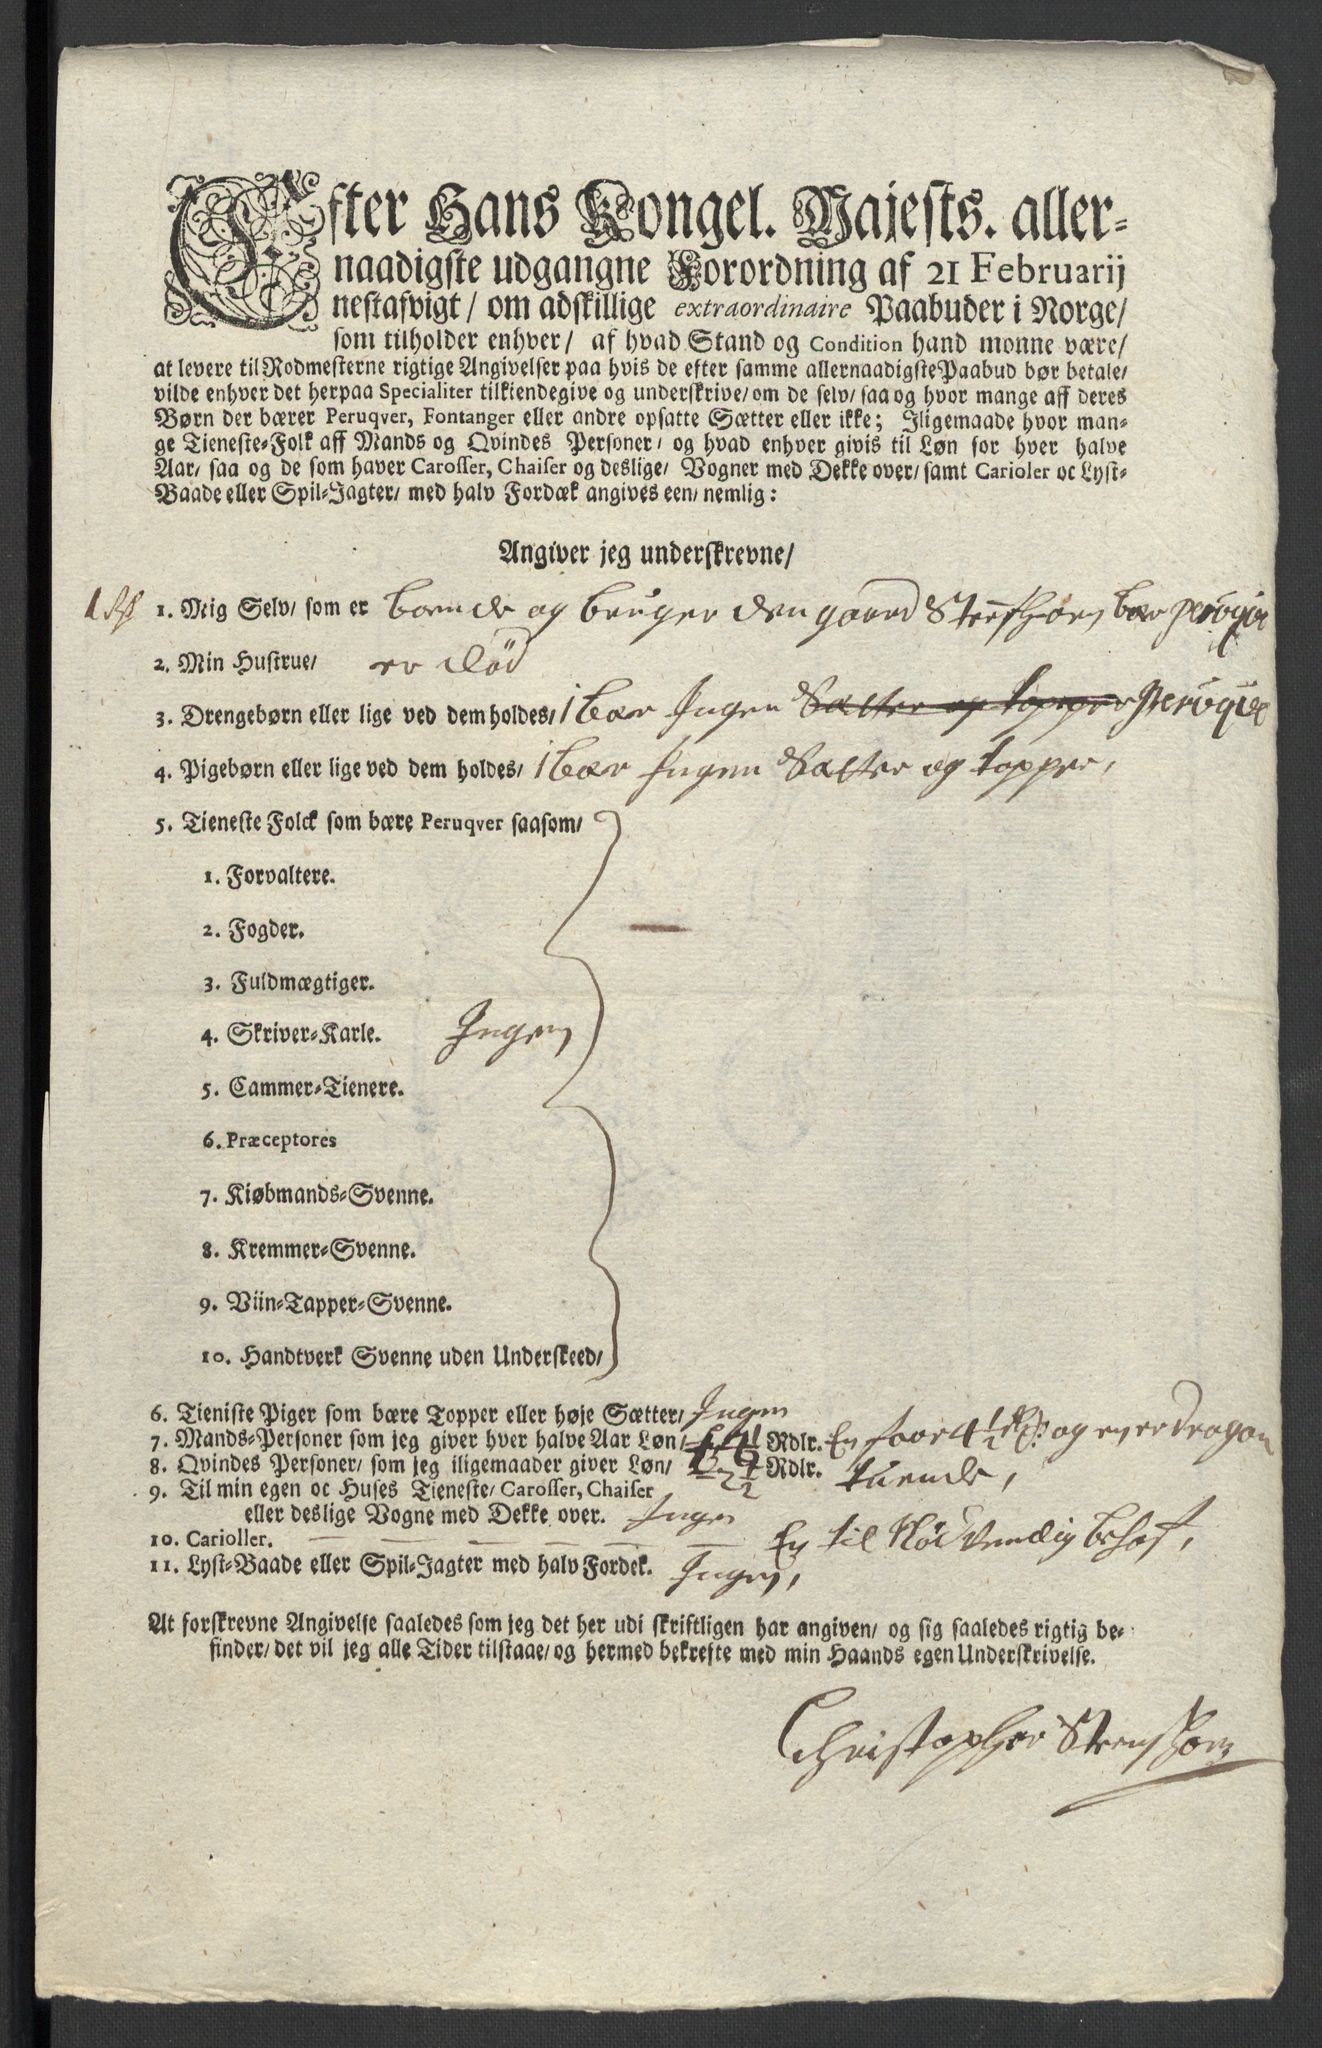 Efter Hans Kongel. Majests. aller-
naadigste udgangne Forordning af 21 Februarij
nestafvigt/ om adskillige extraordinaire Paabuder i Norge/
som tilholder enhver/ af hvad Stand og Condition hand monne være/
at levere til Rodmesterne rigtige Angivelser paa hvis de efter samme allernaadigste Paabud bør betale/
vilde enhver det herpaa Specialiter tilkiendegive og underskrive/ om de selv/ saa og hvor mange aff deres
Børn der bærer Peruqver, Fontanger eller andre opsatte Sætter eller ikke; Iligemaade hvor man-
ge Tieneste-Folk aff Mands og Qvindes Personer/ og hvad enhver givis til Løn for hver halve
Aar/ saa og de som haver Carosser, Chaiser og deslige/ Vogner med Dekke over/ samt Carioler oc Lyst-
Baade eller Spil-Jagter/ med halv Fordæk angives een/ nemlig:
Angiver jeg underskrevne/
1. Mig Selv/ som er boende og bruger den gaard bær peruque
2. Min Hustrue/ er død
3. Drengebørn eller lige ved dem holdes/ 1 bær Ingen Sætter og topper peruque
4. Pigebørn eller lige ved dem holdes/ 1 bær Ingen Sætter og topper,
5. Tieneste Folck som bære Peruqver saasom/
1. Forvaltere.
2. Fogder.
3. Fuldmægtiger.
4. Skriver-Karle. Ingen
5. Cammer-Tienere.
6. Præceptores
7. Kiøbmands-Svenne.
8. Kremmer-Svenne.
9. Viin-Tapper-Svenne.
10. Handtverk Svenne uden Underskeed/
6. Tieniste Piger som bære Topper eller høje Sætter/ Ingen
7. Mands-Personer som jeg giver hver halve Aar Løn/ Rdlr. En faar 4 1/2 Rd: og en er dragon
8. Qvindes Personer/ som jeg iligemaader giver Løn/ Rdlr. tuende,
9. Til min egen oc Huses Tieneste/ Carosser, Chaiser
eller deslige Vogne med Dekke over. Ingen
10. Carioller. En til Nødvendig behof,
11. Lyst-Baade eller Spil-Jagter med halv Fordek. Ingen,
At forskrevne Angivelse saaledes som jeg det her udi skriftligen har angiven/ og sig saaledes rigtig be-
finder/ det vil jeg alle Tider tilstaae/ og hermed bekrefte med min Haands egen Underskrivelse.
Christopher